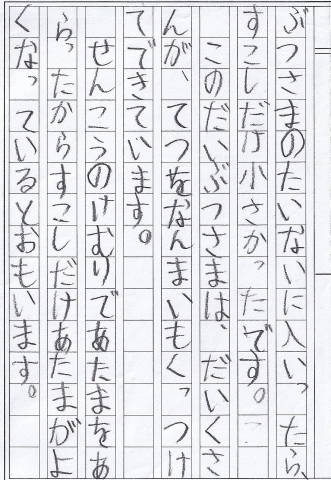 ぶつさまのたいないに入いったら、
すこしだけ小さかったです。
このだいぶつさまは、だいくさ
んが、てつをなんまいもくっつけ
てできています。
せんこうのけむりであたまをあ
らったからすこしだけあたまがよ
くなっているとおもいます。